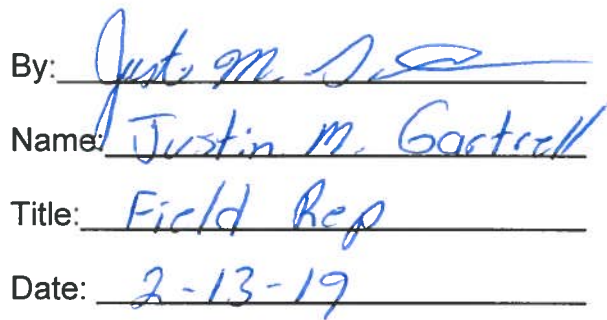 By: Justin M.
Name: Justin M. Gartrell
Title: Field Rep
Date: 2-13-19